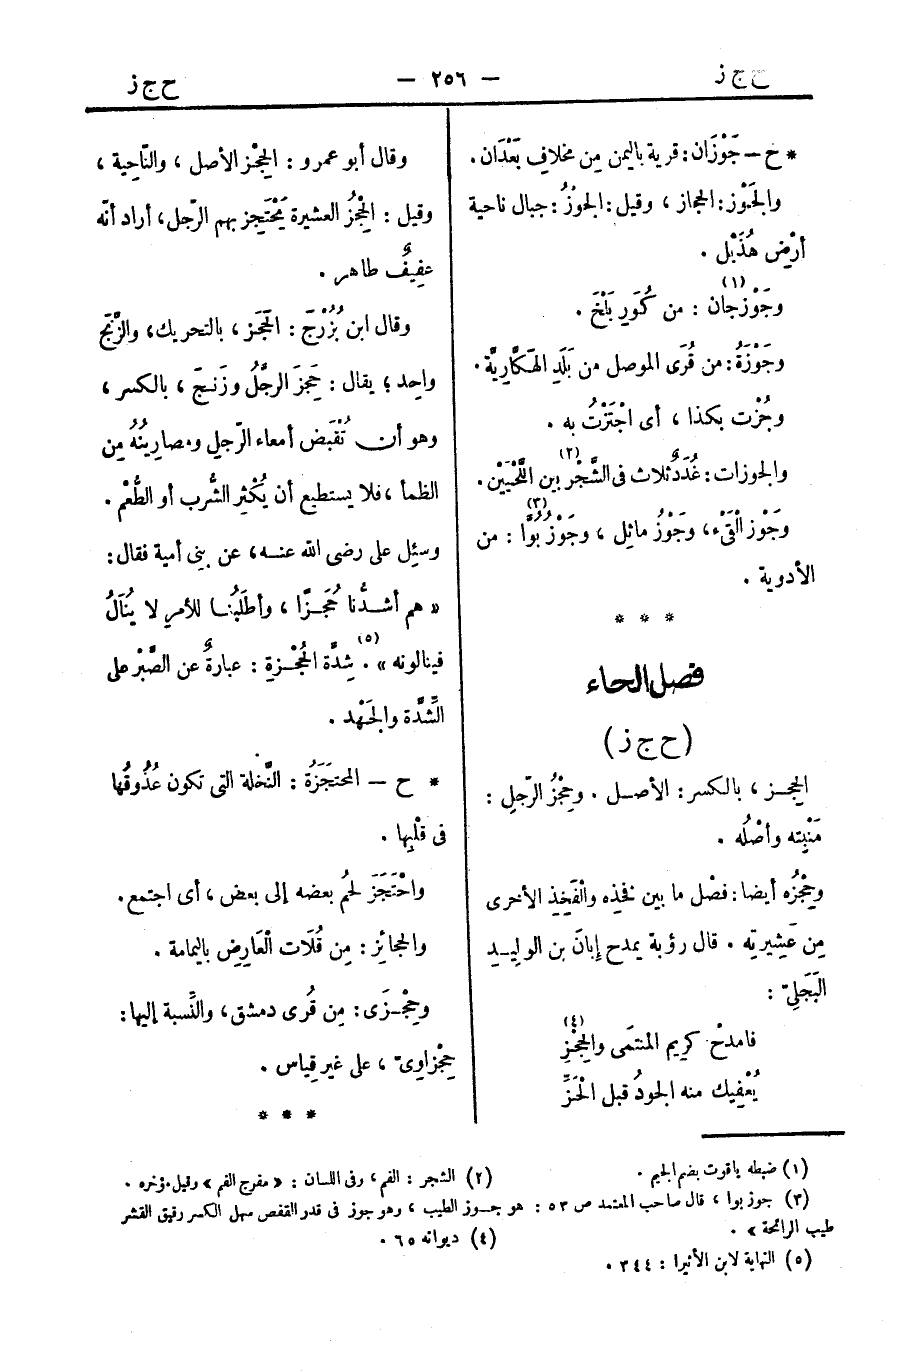 ح ج ز
— ٢٥٦ —
ح ج ز
* خ — جَوْزَان: قرية باليمن مِن مخلاف بَعْدَان.
والجَوْز: الحجاز، وقيل: الجوْزُ: جبال ناحية
أرْضِ هُذَيْل.
وجَوْزجان (١): من كُوَرِ بَلْخَ.
وجَوْزَةُ: من قُرَى الموصل من بَلَدِ الهَكَّارِيَّة.
وجُزْت بكذا، أى اجْتَزْتُ به.
والجوزات: غُدَدٌ ثلاث فى الشَّجْر (٢) بين اللَّحْيَيْن.
وجَوْز القَىْء، وجَوْزُ ماثِل، وجَوْزُ بُوَّا (٣): من
الأدوية.
* * *
فصل الحاء
(ح ج ز)
الحِجـز، بالكسر: الأصـل. وحِجْزُ الرّجلِ:
مَنْبِته وأصْلُه.
وحِجْزُه أيضا: فصْل ما بين فخذِه والفَخِذِ الأخرى
مِن عَشِيرتِه. قال رؤبة يمدح إبانَ بن الوليـد
البَجَلِىّ:
فامدحْ كريم المنتمَى والحِجْزِ (٤)
يُعْفِيك منه الجودُ قبل الحَزِّ
وقال أبو عمرو: الحِجْز الأصل، والنّاحية،
وقيل: الحِجْزُ العشيرة يَحْتَجِز بهم الرّجل، أراد أنّه
عفِيفٌ طاهر.
وقال ابن بُزُرْجَ: الحَجَز، بالتحريك، والزَّنَج
واحد؛ يقال: حَجِزَ الرجُلُ وزَنِجَ، بالكسر،
وهو أن تُقْبَض أمعاء الرّجل ومصارِينُهُ مِن
الظمأ، فلا يستطيع أن يُكْثِر الشُّرب أو الطُّعْم.
وسئِل على رضى الله عنـه، عن بنِى أمية فقال:
« هم أشـدُّنا حُجَـزًا، وأطلَبُنا للأمرِ لا يُنَالُ
فينالونه » (٥). شِدَّة الحُجْـزة: عبارةٌ عن الصَّبْر على
الشِّدَّة والجَهْد.
* ح — المحتجَزَةُ: النَّخلة التى تكون عُذُوقُها
فى قلْبِها.
واحْتَجَزَ لحُم بعضه إلى بعض، أى اجتمع.
والحجائز: مِن قُلَات العَارِض باليمامة.
وحِجْـزَى: مِن قُرى دمشق، والنِّسبة إليها:
حِجْزاوِىّ، على غير قِياس.
* * *
(١) ضبطه ياقوت بضم الجيم.
(٢) الشجر: الفم، وفى اللسان: « مفرج الفم » وقيل مؤخره.
(٣) جوز بوا، قال صاحب المعتمد ص ٥٣: هو جـوز الطيب، وهو جوز فى قدر العفص سهل الكسر رقيق القشر
طيب الرائحة ».
(٤) ديوانه ٦٥.
(٥) النهاية لابن الأثير ١: ٣٤٤.